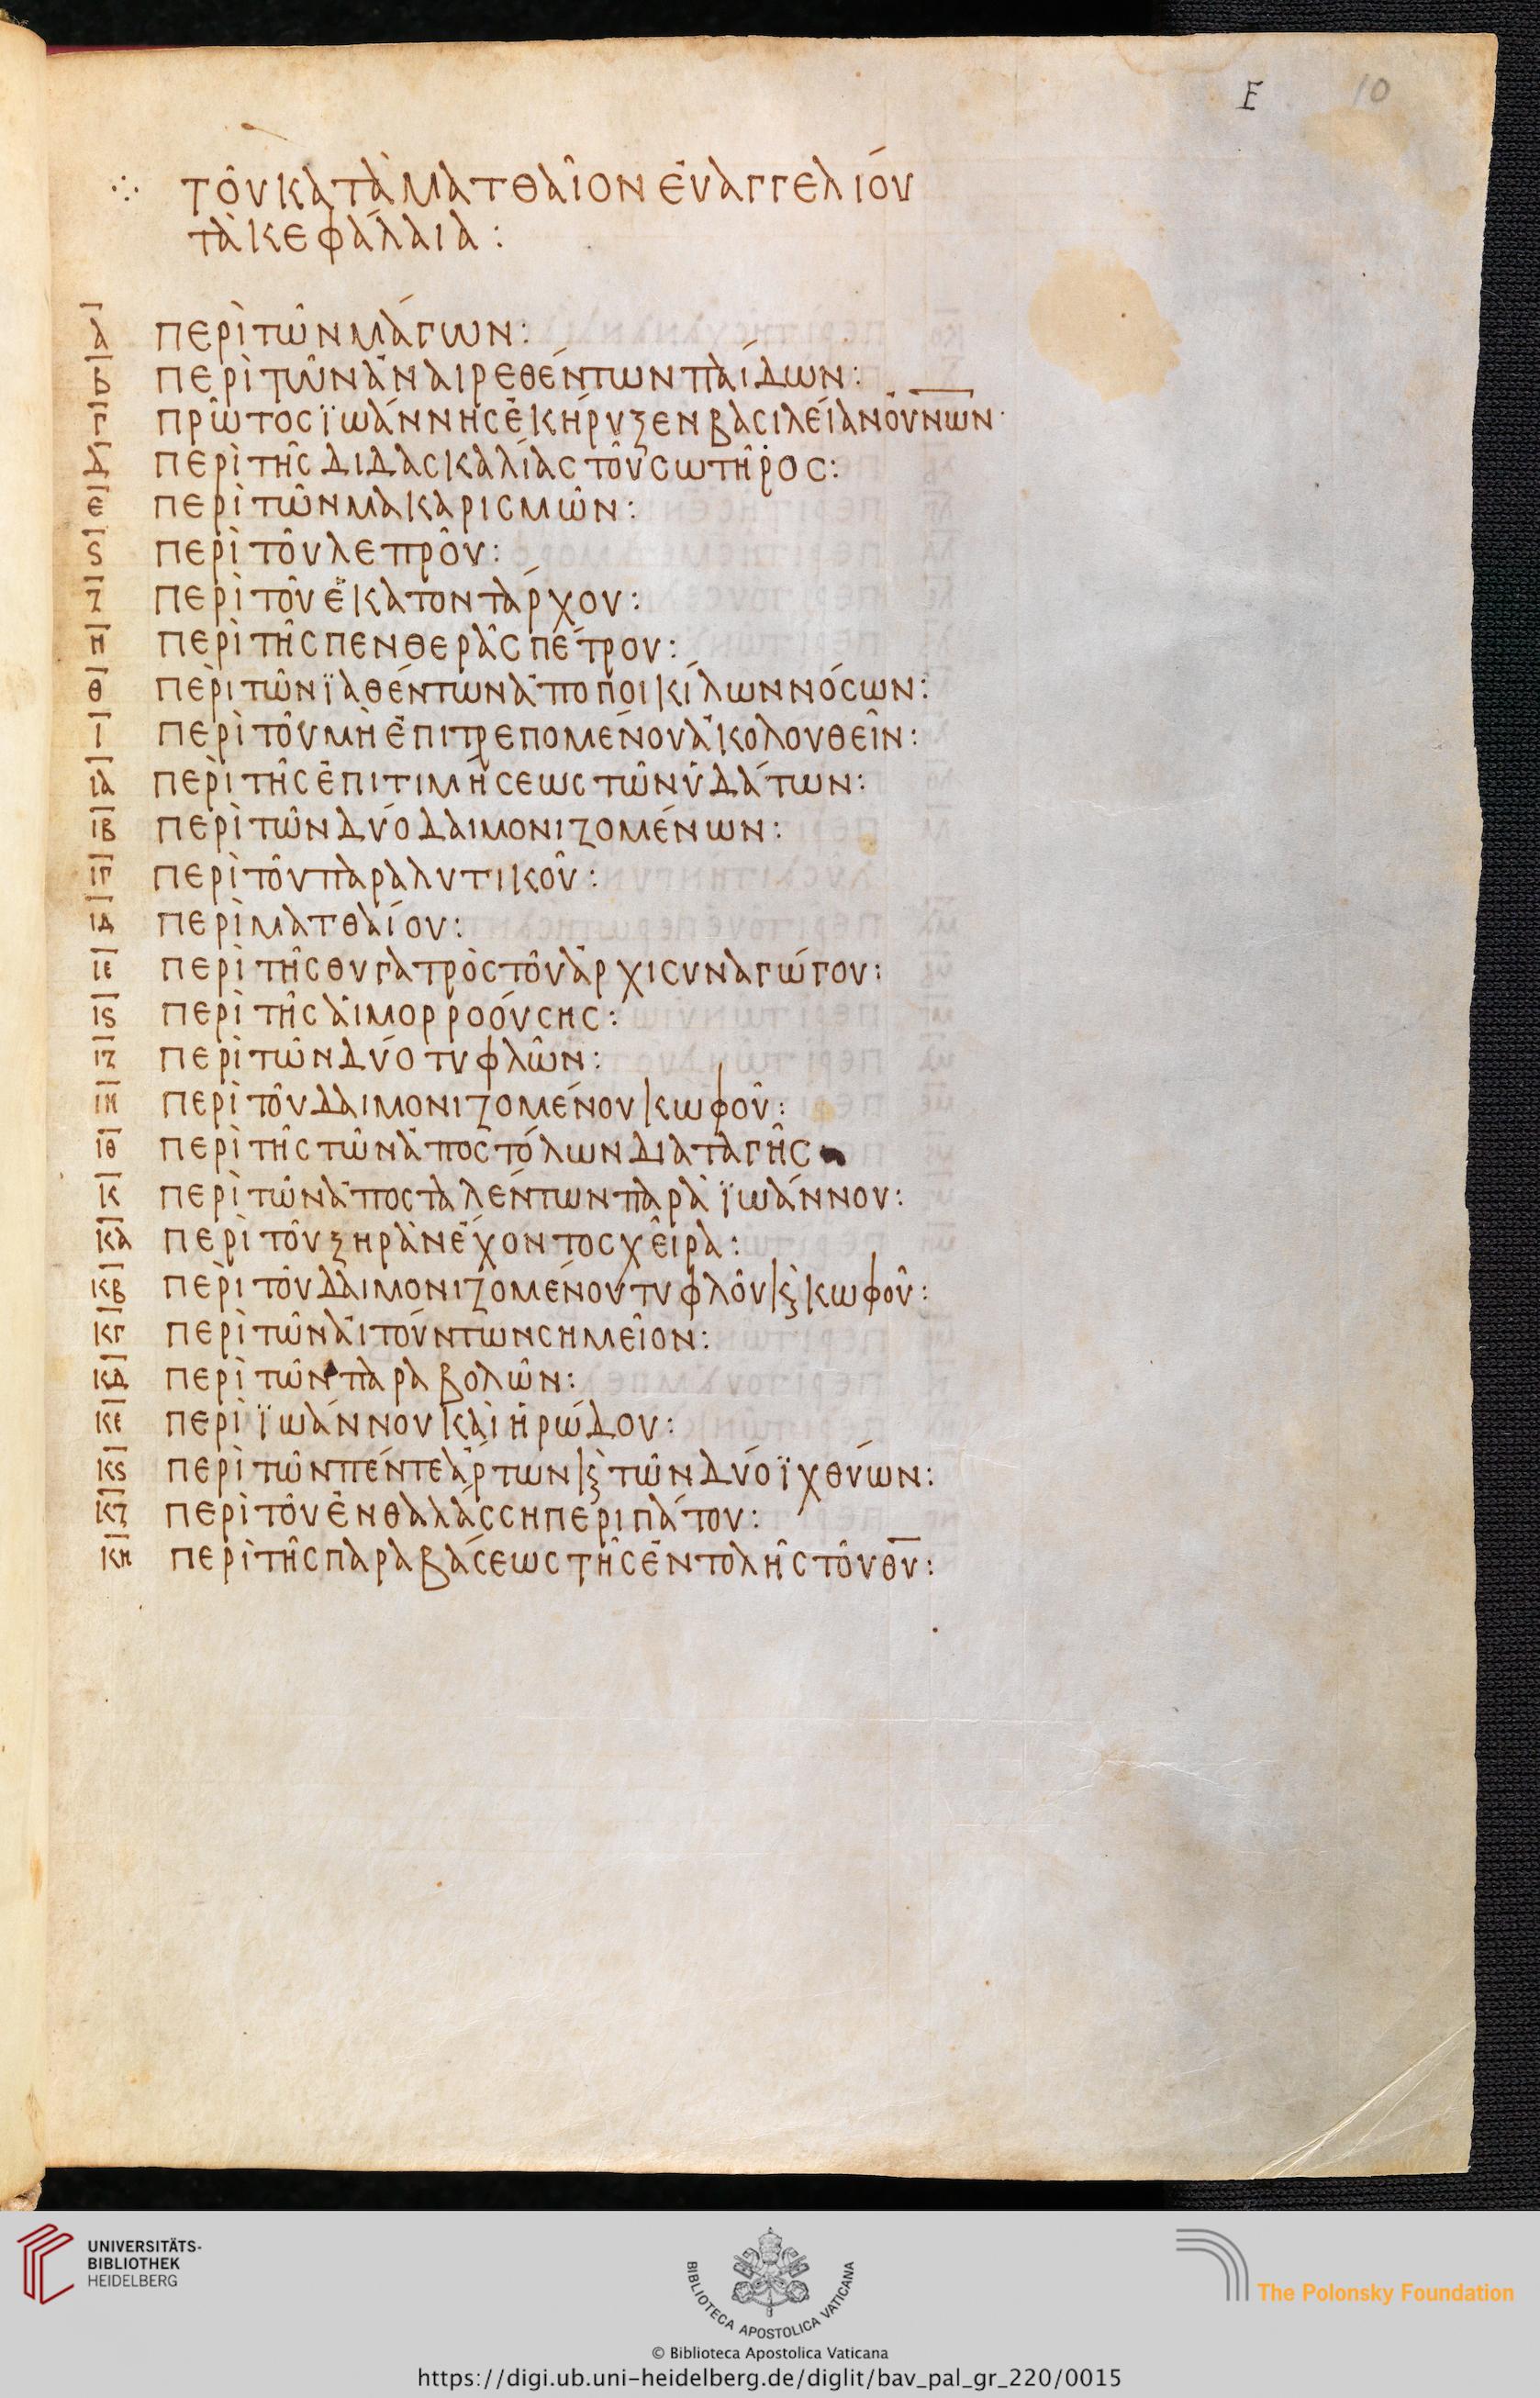 E 10
⁘ τοῦ κατὰ ματθαῖον ἐυαγγελίου
τὰ κεφάλαια :
α̅ περὶ τῶν μάγων :
β̅ περὶ τῶν ἀναιρεθέντων παίδων :
γ̅ πρῶτος ϊωάννης ἐκήρυξεν βασιλείαν ὀυν̅ω̅ν̅ ·
δ̅ περὶ τῆς διδασκαλίας τοῦ σωτῆρος :
ε̅ περὶ τῶν μακαρισμῶν :
ϛ̅ περὶ τοῦ λεπροῦ :
ζ̅ περὶ τοῦ ἑκατοντάρχου :
η̅ περὶ τῆς πενθερᾶς πέτρου :
θ̅ περὶ τῶν ϊαθέντων ἀπο ποικίλων νόσων :
ι̅ περὶ τοῦ μὴ ἐπιτρεπομένου ἀκολουθεῖν :
ι̅α̅ περὶ τῆς ἐπιτιμήσεως τῶν ὑδάτων :
ι̅β̅ περὶ τῶν δύο δαιμονιζομένων :
ι̅γ̅ περὶ τοῦ παραλυτικοῦ :
ι̅δ̅ περὶ ματθαίου :
ι̅ε̅ περὶ τῆς θυγατρὸς τοῦ ἀρχισυναγώγου :
ι̅ϛ̅ περὶ τῆς ἁιμορροούσης :
ι̅ζ̅ περὶ τῶν δύο τυφλῶν :
ι̅η̅ περὶ τοῦ δαιμονιζομένου κωφοῦ :
ι̅θ̅ περὶ τῆς τῶν ἀποστόλων διαταγῆς
κ̅ περὶ τῶν ἀποσταλέντων παρὰ ϊωάννου :
κ̅α̅ περὶ τοῦ ξηρὰν ἔχοντος χεῖρα :
κ̅β̅ περὶ τοῦ δαιμονιζομένου τυφλοῦ κ̀ κωφοῦ :
κ̅γ̅ περὶ τῶν ἀιτούντων σημεῖον :
κ̅δ̅ περὶ τῶν παραβολῶν :
κ̅ε̅ περὶ ϊωάννου καὶ ἡρώδου :
κ̅ϛ̅ περὶ τῶν πέντε ἄρτων κ̀ τῶν δύο ϊχθύων :
κ̅ζ̅ περὶ τοῦ ἐν θαλάσση περιπάτου :
κ̅η̅ περὶ τῆς παραβάσεως τῆς ἐντολῆς τοῦ θ̅υ̅ :
UNIVERSITÄTS-
BIBLIOTHEK
HEIDELBERG
BIBLIOTECA APOSTOLICA VATICANA
The Polonsky Foundation
© Biblioteca Apostolica Vaticana
https://digi.ub.uni-heidelberg.de/diglit/bav_pal_gr_220/0015